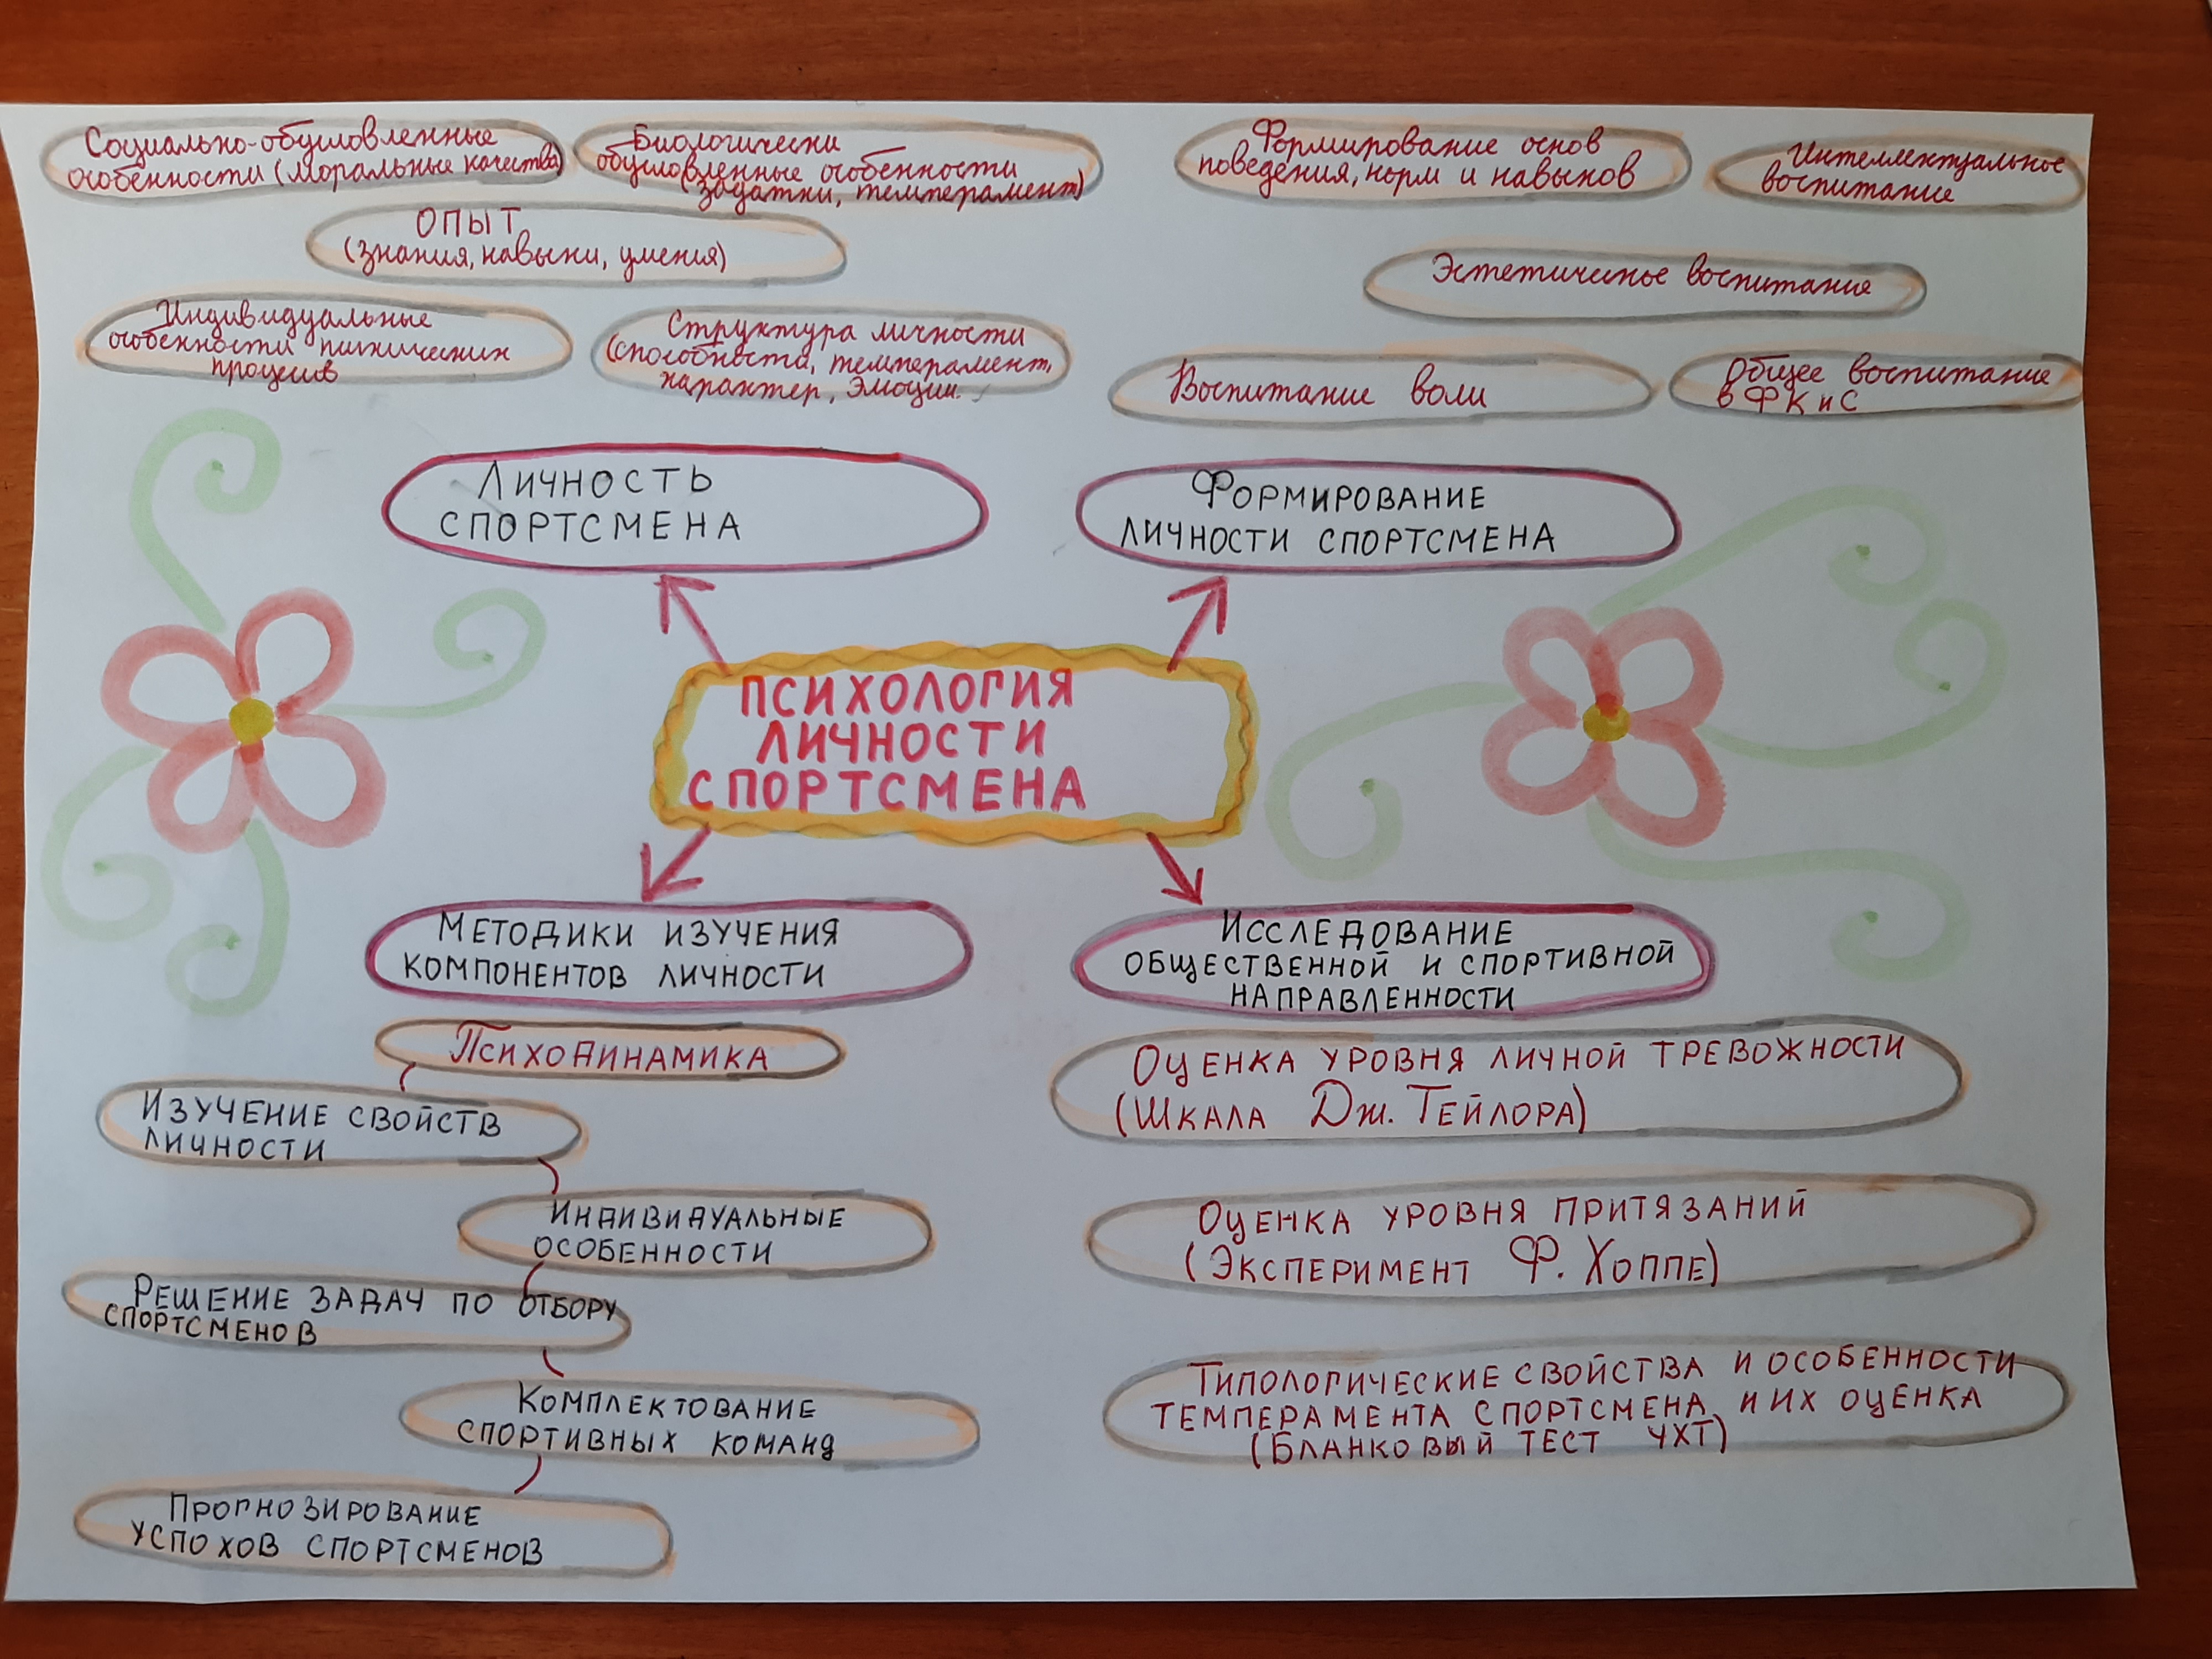 Социально-обусловленные
особенности (моральные качества)
Биологически
обусловленные особенности
(задатки, темперамент)
ОПЫТ
(знания, навыки, умения)
Индивидуальные
особенности психических
процессив
Структура личности
(способности, темперамент,
характер, эмоции.
Формирование основ
поведения, норм и навыков
Интеллектуальное
воспитание
Эстетическое воспитание
Воспитание воли
Общее воспитание
в ФК и С
ЛИЧНОСТЬ
СПОРТСМЕНА
ФОРМИРОВАНИЕ
ЛИЧНОСТИ СПОРТСМЕНА
ПСИХОЛОГИЯ
ЛИЧНОСТИ
СПОРТСМЕНА
МЕТОДИКИ ИЗУЧЕНИЯ
КОМПОНЕНТОВ ЛИЧНОСТИ
ПСИХОДИНАМИКА
ИЗУЧЕНИЕ СВОЙСТВ
ЛИЧНОСТИ
ИНДИВИДУАЛЬНЫЕ
ОСОБЕННОСТИ
РЕШЕНИЕ ЗАДАЧ ПО ОТБОРУ
СПОРТСМЕНОВ
КОМПЛЕКТОВАНИЕ
СПОРТИВНЫХ КОМАНД
ПРОГНОЗИРОВАНИЕ
УСПОХОВ СПОРТСМЕНОВ
ИССЛЕДОВАНИЕ
ОБЩЕСТВЕННОЙ И СПОРТИВНОЙ
НАПРАВЛЕННОСТИ
ОЦЕНКА УРОВНЯ ЛИЧНОЙ ТРЕВОЖНОСТИ
(ШКАЛА ДЖ. ТЕЙЛОРА)
ОЦЕНКА УРОВНЯ ПРИТЯЗАНИЙ
(ЭКСПЕРИМЕНТ Ф. ХОППЕ)
ТИПОЛОГИЧЕСКИЕ СВОЙСТВА И ОСОБЕННОСТИ
ТЕМПЕРАМЕНТА СПОРТСМЕНА И ИХ ОЦЕНКА
(БЛАНКОВЫЙ ТЕСТ ЧХТ)